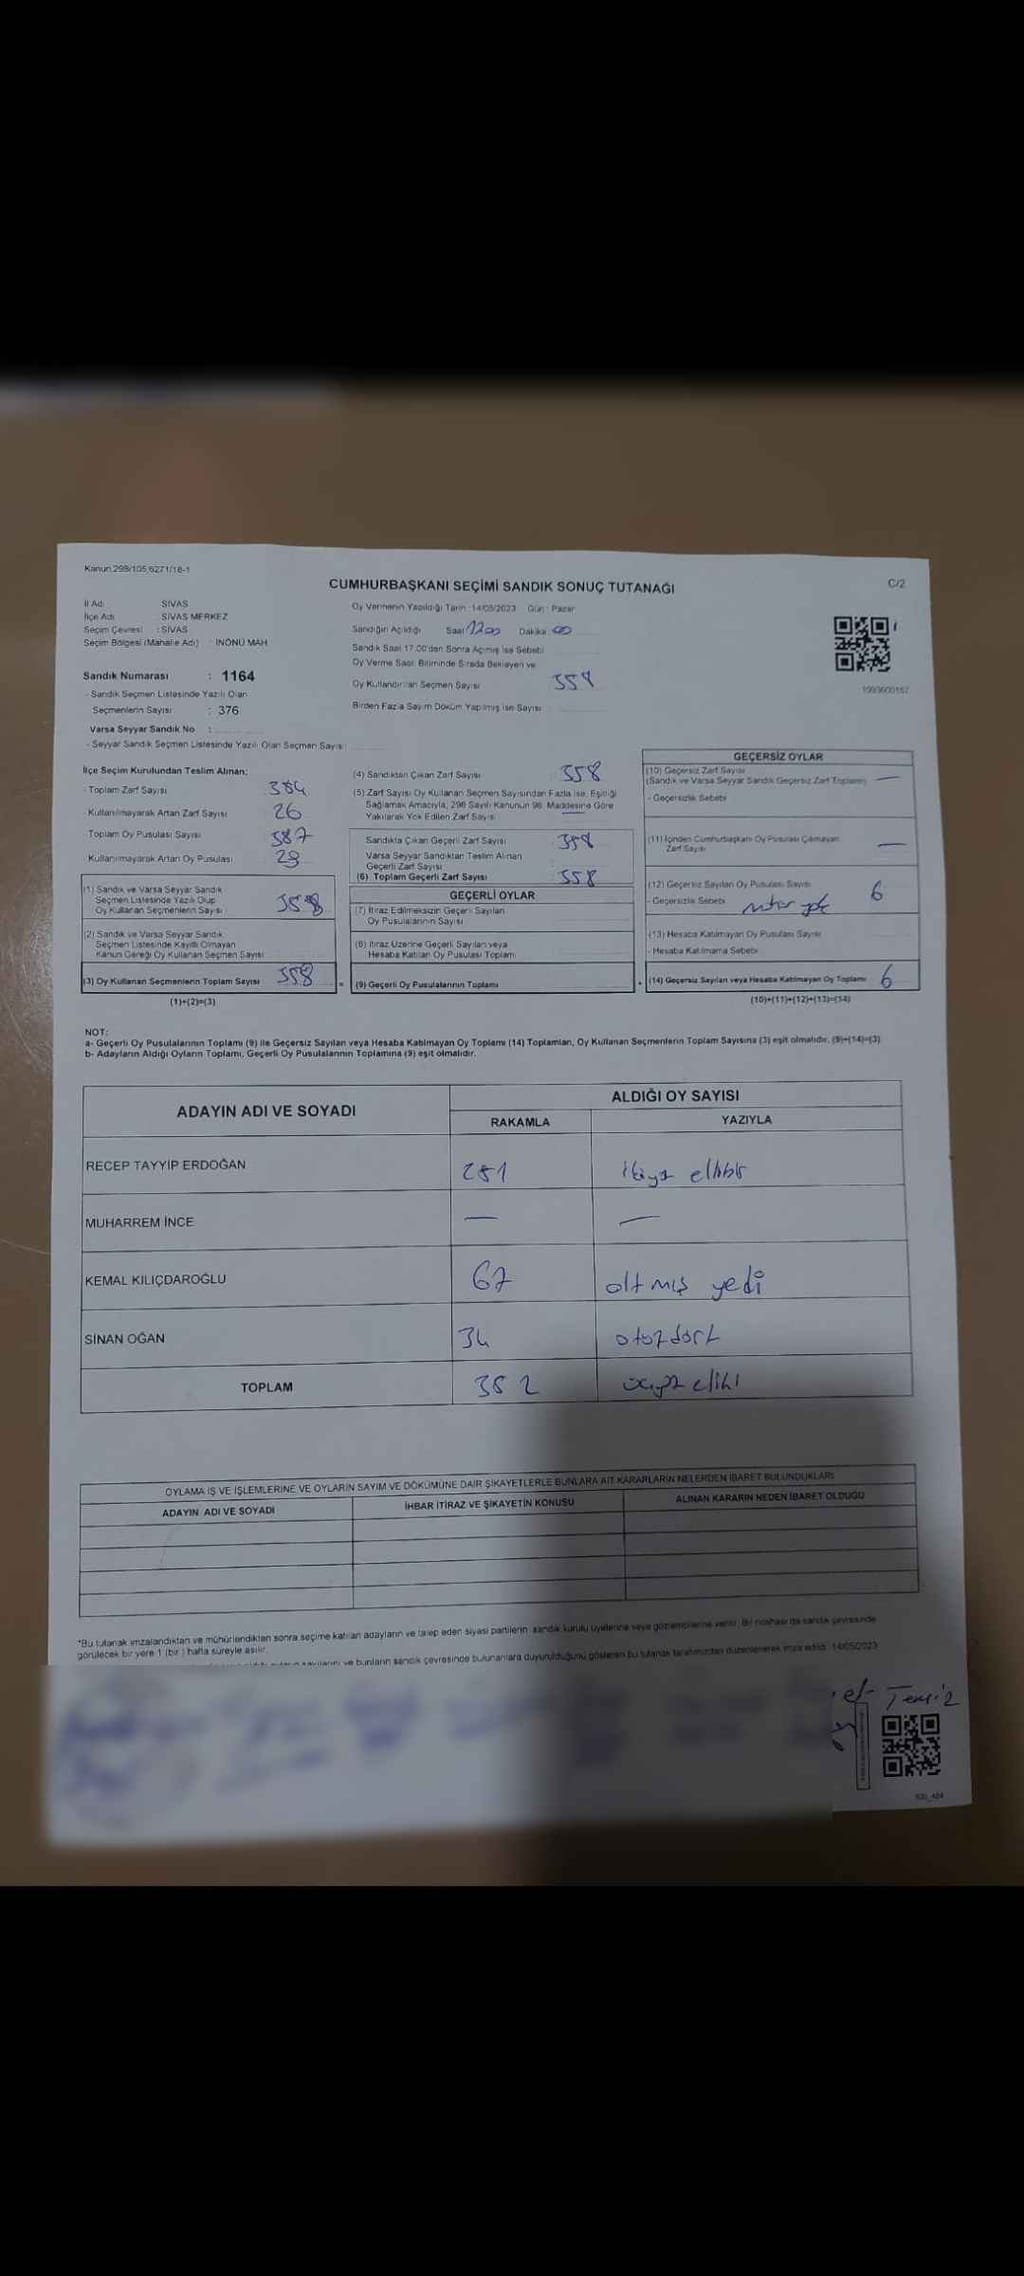 Kanun 298/105,6271/18-1
C/2
CUMHURBAŞKANI SEÇİMİ SANDIK SONUÇ TUTANAĞI
İl Adı SİVAS
İlçe Adı SİVAS MERKEZ
Seçim Çevresi : SİVAS
Seçim Bölgesi (Mahalle Adı) : İNÖNÜ MAH
Sandık Numarası : 1164
- Sandık Seçmen Listesinde Yazılı Olan
Seçmenlerin Sayısı : 376
Varsa Seyyar Sandık No :
- Seyyar Sandık Seçmen Listesinde Yazılı Olan Seçmen Sayısı :
Oy Vermenin Yapıldığı Tarih : 14/05/2023 Gün : Pazar
Sandığın Açıldığı Saat 1700 Dakika 00
Sandık Saat 17.00'dan Sonra Açılmış İse Sebebi
Oy Verme Saati Bitiminde Sırada Bekleyen ve
Oy Kullandırılan Seçmen Sayısı
Birden Fazla Sayım Döküm Yapılmış İse Sayısı
1093600157
İlçe Seçim Kurulundan Teslim Alınan;
- Toplam Zarf Sayısı 384
- Kullanılmayarak Artan Zarf Sayısı 26
- Toplam Oy Pusulası Sayısı 387
- Kullanılmayarak Artan Oy Pusulası 29
(1) Sandık ve Varsa Seyyar Sandık
Seçmen Listesinde Yazılı Olup
Oy Kullanan Seçmenlerin Sayısı 358
(2) Sandık ve Varsa Seyyar Sandık
Seçmen Listesinde Kayıtlı Olmayan
Kanun Gereği Oy Kullanan Seçmen Sayısı
(3) Oy Kullanan Seçmenlerin Toplam Sayısı 358
(1)+(2)=(3)
(4) Sandıktan Çıkan Zarf Sayısı 358
(5) Zarf Sayısı Oy Kullanan Seçmen Sayısından Fazla İse, Eşitliği
Sağlamak Amacıyla, 298 Sayılı Kanunun 98. Maddesine Göre
Yakılarak Yok Edilen Zarf Sayısı —
Sandıkta Çıkan Geçerli Zarf Sayısı 358
Varsa Seyyar Sandıktan Teslim Alınan
Geçerli Zarf Sayısı
(6) Toplam Geçerli Zarf Sayısı 358
GEÇERLİ OYLAR
(7) İtiraz Edilmeksizin Geçerli Sayılan
Oy Pusulalarının Sayısı
(8) İtiraz Üzerine Geçerli Sayılan veya
Hesaba Katılan Oy Pusulası Toplamı
(9) Geçerli Oy Pusulalarının Toplamı
GEÇERSİZ OYLAR
(10) Geçersiz Zarf Sayısı —
(Sandık ve Varsa Seyyar Sandık Geçersiz Zarf Toplamı)
- Geçersizlik Sebebi
(11) İçinden Cumhurbaşkanı Oy Pusulası Çıkmayan —
Zarf Sayısı
(12) Geçersiz Sayılan Oy Pusulası Sayısı 6
- Geçersizlik Sebebi
(13) Hesaba Katılmayan Oy Pusulası Sayısı
- Hesaba Katılmama Sebebi
(14) Geçersiz Sayılan veya Hesaba Katılmayan Oy Toplamı 6
(10)+(11)+(12)+(13)=(14)
NOT:
a- Geçerli Oy Pusulalarının Toplamı (9) ile Geçersiz Sayılan veya Hesaba Katılmayan Oy Toplamı (14) Toplamları, Oy Kullanan Seçmenlerin Toplam Sayısına (3) eşit olmalıdır. (9)+(14)=(3)
b- Adayların Aldığı Oyların Toplamı, Geçerli Oy Pusulalarının Toplamına (9) eşit olmalıdır.
ADAYIN ADI VE SOYADI
ALDIĞI OY SAYISI
RAKAMLA YAZIYLA
RECEP TAYYİP ERDOĞAN 251 ikiyüz ellibir
MUHARREM İNCE — —
KEMAL KILIÇDAROĞLU 67 altmış yedi
SİNAN OĞAN 34 otuzdört
TOPLAM 352 üçyüz elliiki
OYLAMA İŞ VE İŞLEMLERİNE VE OYLARIN SAYIM VE DÖKÜMÜNE DAİR ŞİKAYETLERLE BUNLARA AİT KARARLARIN NELERDEN İBARET BULUNDUKLARI
ADAYIN ADI VE SOYADI İHBAR İTİRAZ VE ŞİKAYETİN KONUSU ALINAN KARARIN NEDEN İBARET OLDUĞU
*Bu tutanak imzalandıktan ve mühürlendikten sonra seçime katılan adayların ve talep eden siyasi partilerin, sandık kurulu üyelerine veya gözlemcilerine verilir. Bir nüshası da sandık çevresinde
görülecek bir yere 1 (bir) hafta süreyle asılır.
ve bunların sandık çevresinde bulunanlara duyurulduğunu gösteren bu tutanak tarafımızdan düzenlenerek imza edildi. 14/05/2023
Temiz